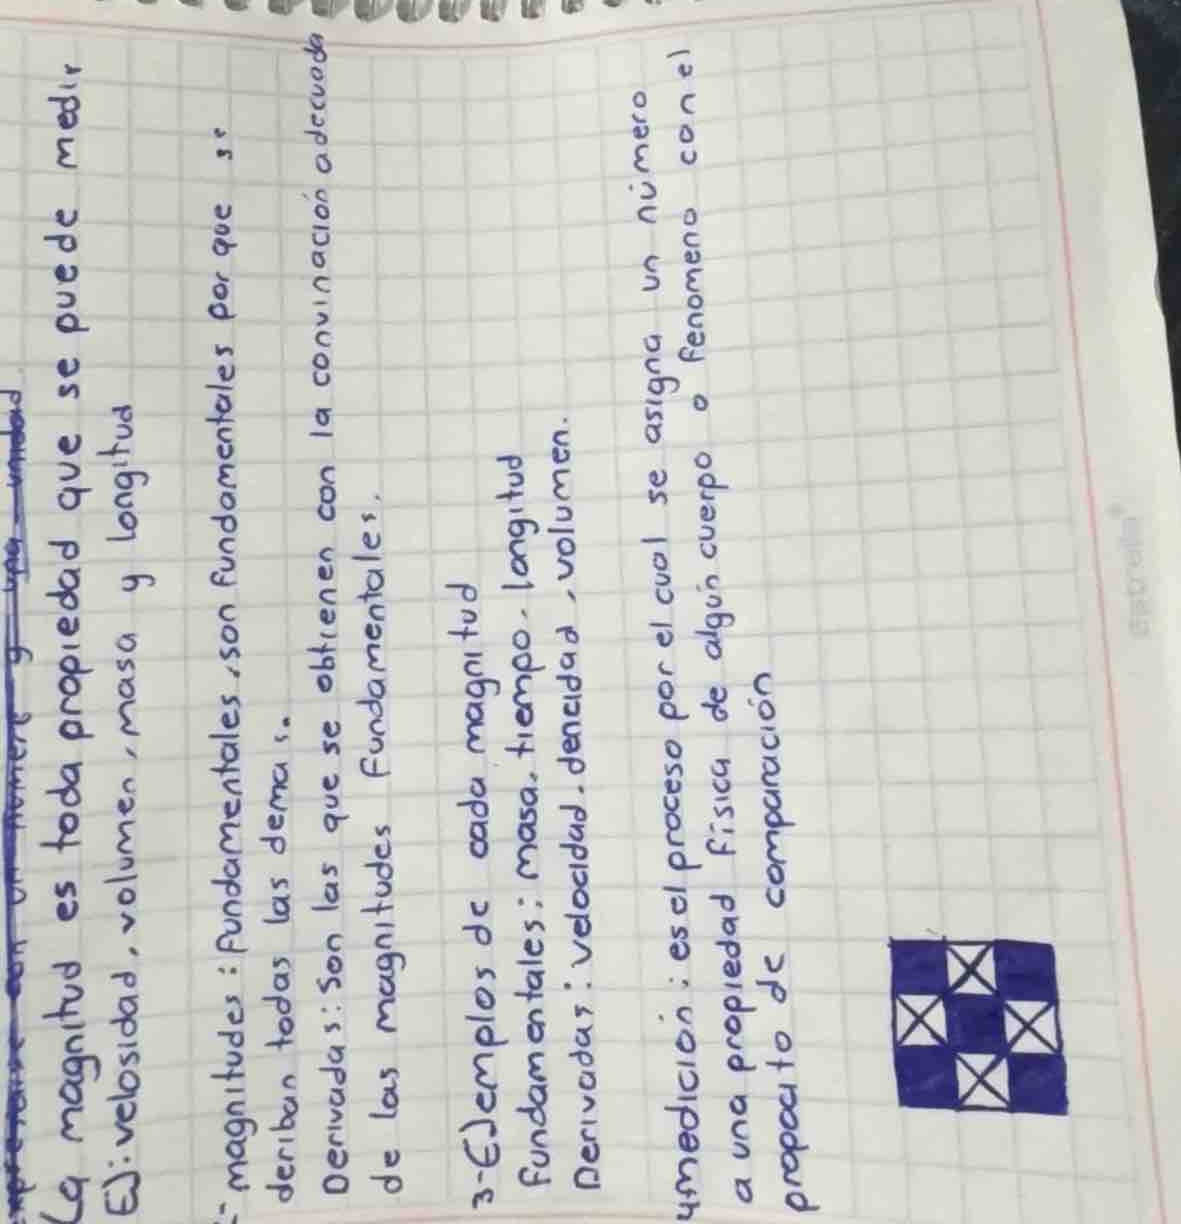 La magnitud es toda propiedad que se puede medir
EJ: velosidad, volumen, masa y longitud
- magnitudes: fundamentales, son fundamentales por que se
deriban todas las demas.
Derivadas: son las que se obtienen con la convinación adecuada
de las magnitudes fundamentales.
3-EJemplos de cada magnitud
fundamentales: masa. tiempo. longitud
Derivadas: velocidad. dencidad, volumen.
4medición: es el proceso por el cual se asigna un número
a una propiedad física de algún cuerpo o fenomeno con el
propocito de comparación
estrella